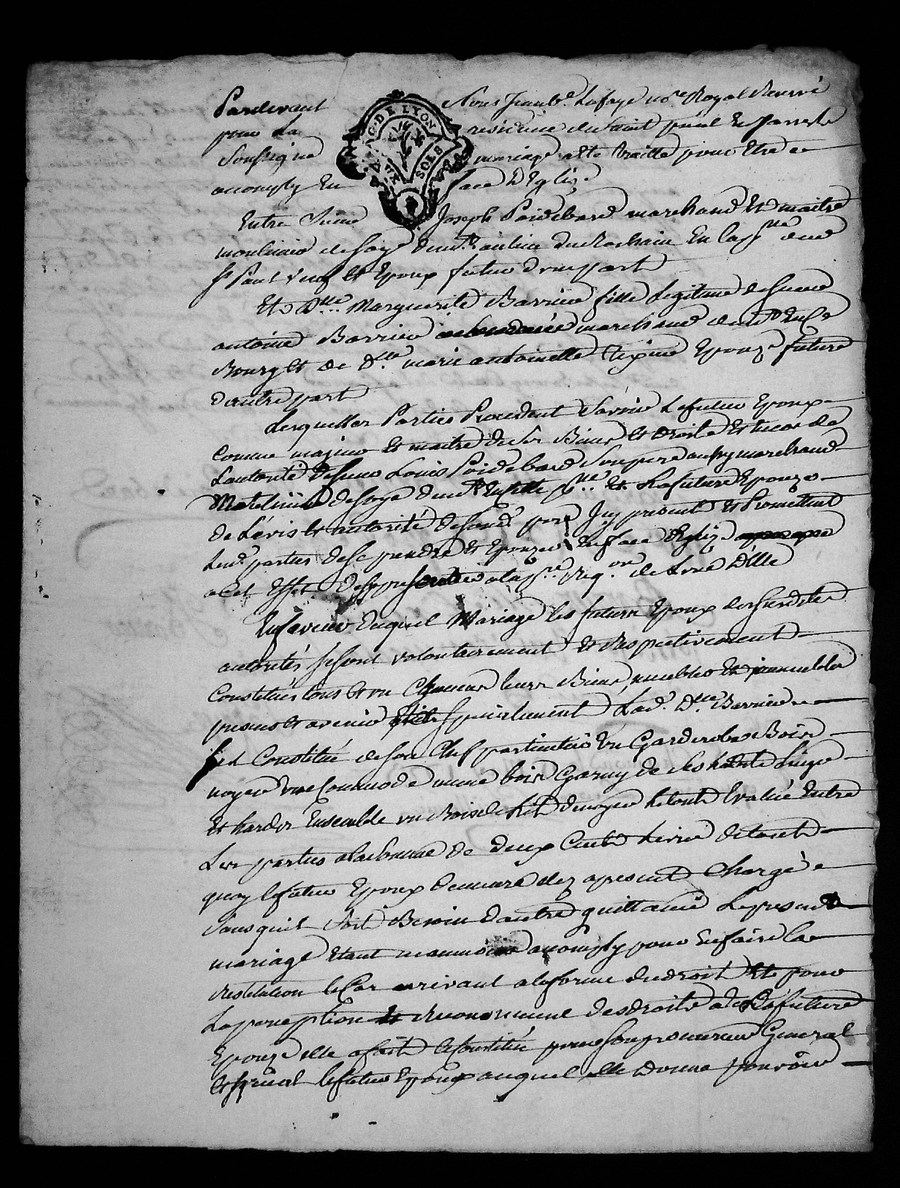 Pardevant Nous Jean Lafaye no.re Royal Reservé
pour La residence de Saint paul En Jarrest
Soussigné mariage a Eté traitté pour Etre
accomply En face D'Eglize
Entre Sieur Joseph Poidebard marchand Et maitre
moulinier de soye demt. en la psse. de
St Paul veuf Et Epoux futur d'une part
Et Dlle. Marguerite Barrier fille Legitime de feu
antoine Barrier marchand
Bourg Et de Dlle. marie antoinette Epouze future
d'autre part
Lesquelles Parties Procedent Savoir Le futur Epoux
Comme majeur Et maitre de Ses Biens Et droits Et encor de
L'autorité de Sieur Louis Poidebard Son pere aussy marchand
Moulinier de soye demt. Et La future Epouze
de L'avis Et autorité de Icy present Et Promettent
Les. parties de Se prendre Et Epouzer En face d'Eglize
a cet Effet a la pre. Req.on de L'une d'Elle
En faveur duquel Mariage les futurs Epoux de Susdites
autorités se sont volontairement Et Respectivement
Constitués tous Et un Chacun leurs Biens meubles Et immeubles
presents Et avenir Specialement Lad. Dlle Barrier
S'est Constitué de Son Chef particulier Un Garderobe Bois
noyer une Commode meme bois Garny de Linge
Et hardes Ensemble un Bois de Lit noyer le tout Evalué Entre
Les parties a la somme de deux Cents Livres du tout
quoy le futur Epoux Demeure dez apresent Chargé
Sans quil Soit Besoin d'autre quittance Le present
mariage Etant accomply pour En faire la
restitution le Cas arrivant a la forme du droit Et pour
La perception Et recouvrement des droits de La future
Epouze elle a fait Et Constitué pour Son procureur General
Et special le futur Epoux auquel elle Donne pouvoir
G. DE LYON
SOLS